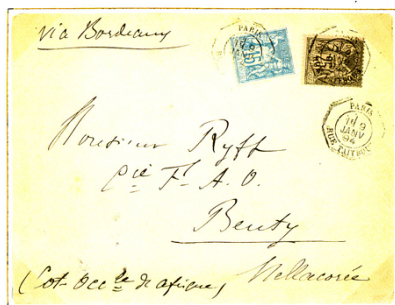 via Bordeaux
PARIS
15
PARIS
19
JANV
94
RUE TAITBOUT
Monsieur Ryff
Cie F. A. O.
Benty
Mellacorée
(Cot. Occle de afrique)